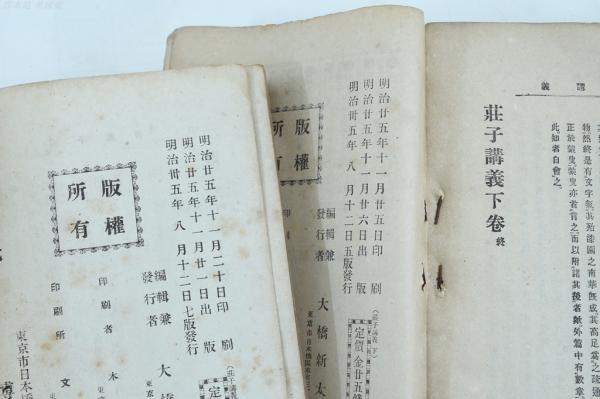 講義
物然終是有文字氣其殆漆園之南華既成其高足爲之疏通
正於蒙叟蒙叟亦首肯之而以附諸其後者敵外篇中有數章
此知者自會之
莊子講義下卷終
明治廿五年十一月廿五日印刷
明治廿五年十一月廿六日出版
明治卅五年八月十二日五版發行
(莊子講義下)
定價金廿五錢
編輯兼
發行者
大橋新太
東京市日本橋區本
版權
所有
明治廿五年十一月二十日印刷
明治廿五年十一月廿一日出版
明治卅五年八月十二日七版發行
(莊子講義
定
編輯兼
發行者
大
東京
版權
所有
印刷者
木
印刷所
文
東京市日本橋